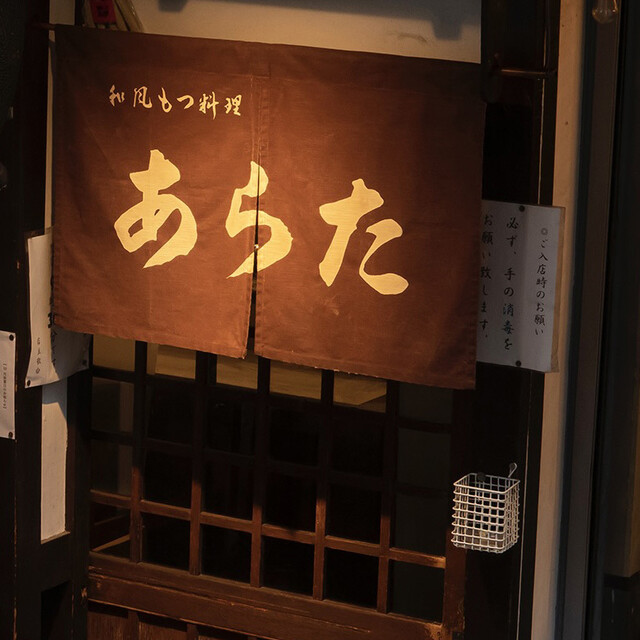 和風もつ料理
あらた
◎ご入店時のお願い
必ず、手の消毒を
お願い致します。